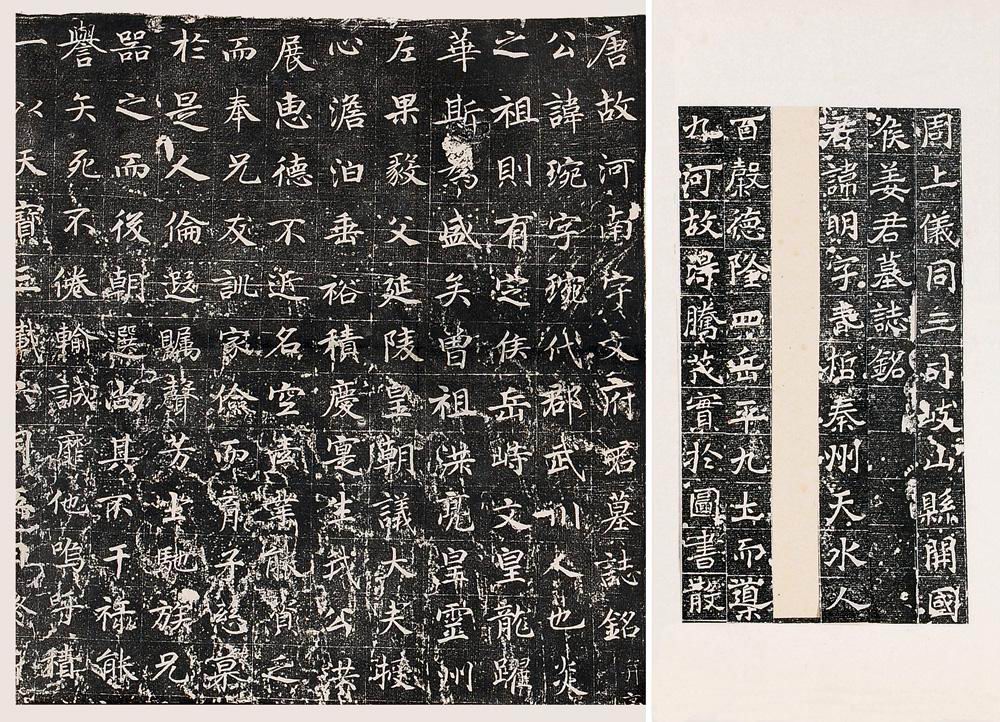 唐故河南宇文府君墓誌銘并
公諱琬字琬代郡武川人也炎
之祖則有定侯岳峙文皇龍躍
華斯為盛矣曾祖洪亮皇靈州
左果毅父延陵皇朝議大夫
心澹泊垂裕積慶寔生我公
展惠德不近名空業能
而奉兄友訓家儉而育
於是人倫遐矚聲芳坐馳族兄
器之而後朝選尚其不干祿能
譽矢死不倦輸誠靡他嗚呼積
一以天寶五載六
周上儀同三司岐山縣開國
侯姜君墓誌銘
君諱明字春悊秦州天水人
酋馨德隆四岳平九土而導
九河故得騰茂實於圖書散